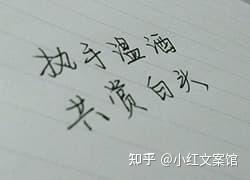 执手温酒
共赏白头
知乎 @小红文案馆